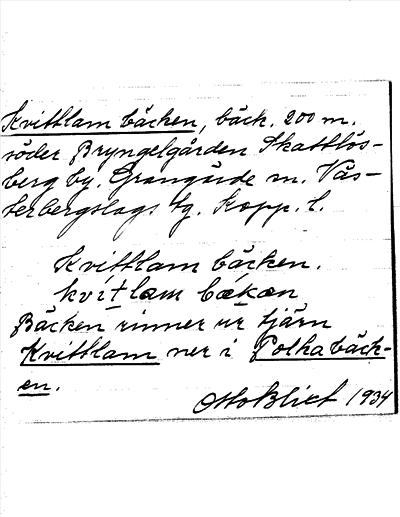 Kvittlam bäcken, bäck. 200 m.
söder Bryngelgården Skattlös-
berg by. Grangärde sn. Väs-
terbergslags tg. Kopp. l.
Kvittlam bäcken.
kvitlam bækæn
Bäcken rinner ur tjärn
Kvittlam ner i Polkabäck-
en.
Otto Blixt 1934